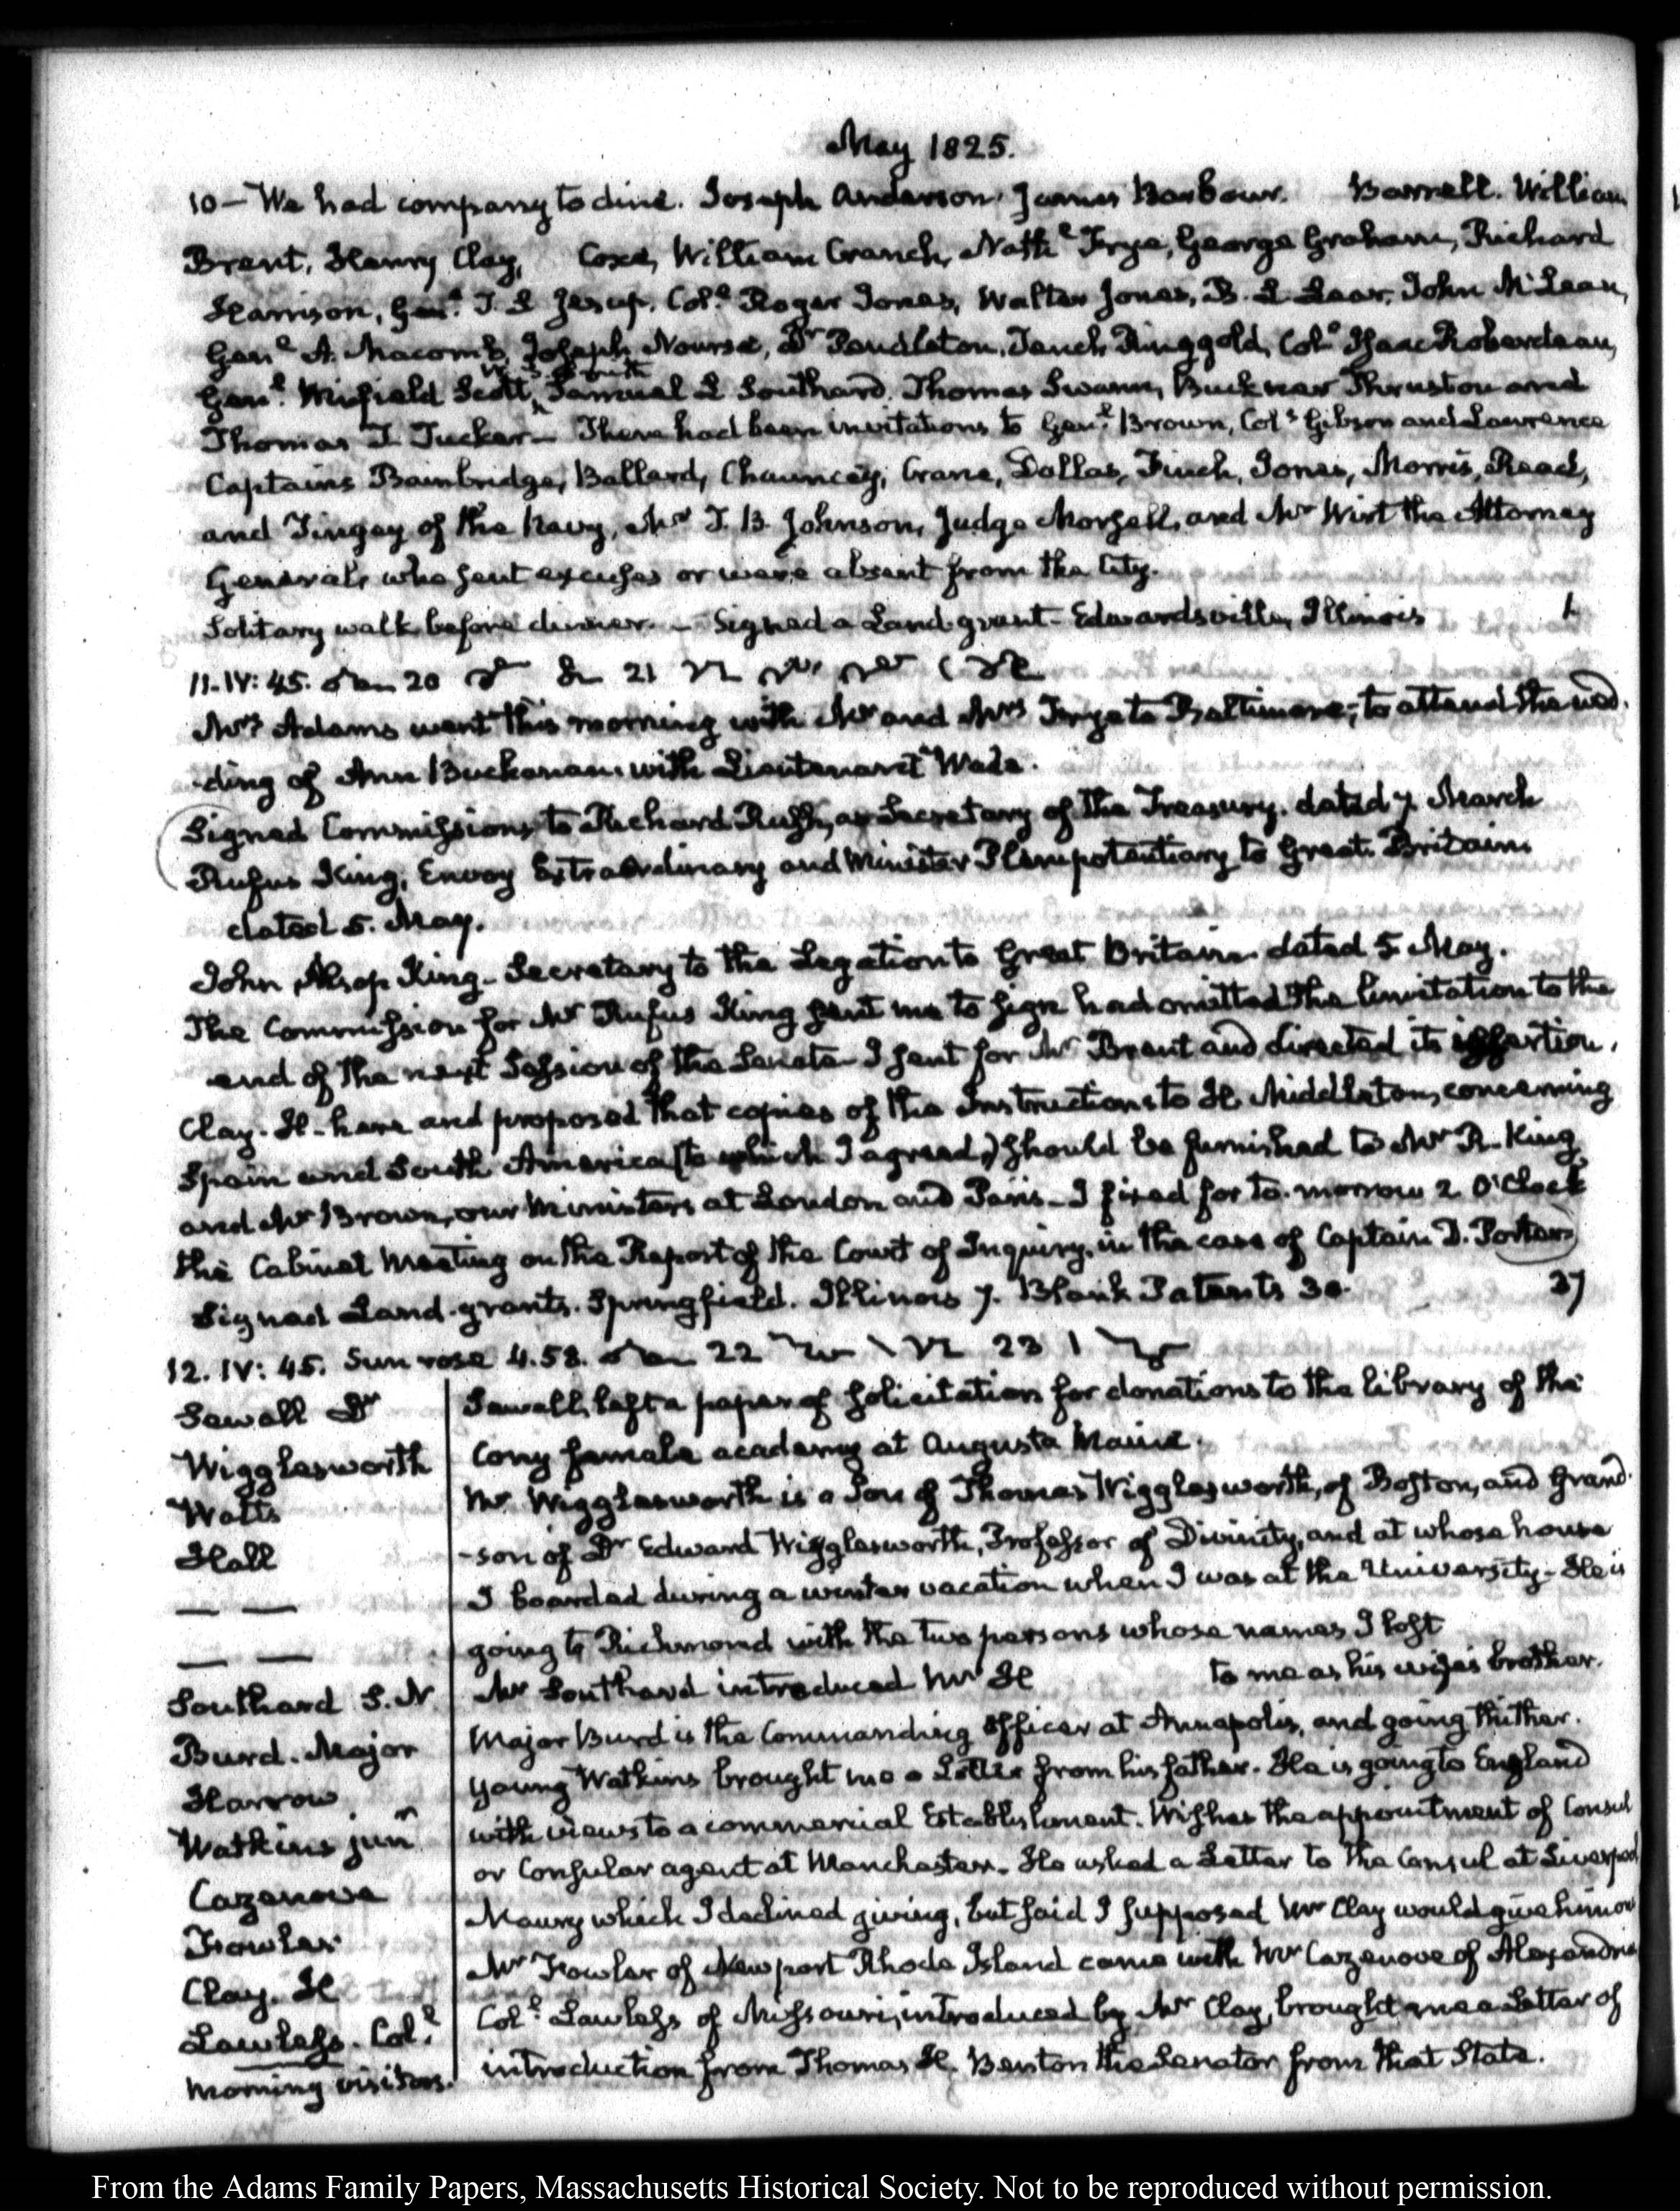 May 1825.
10 — We had company to dine. Joseph Anderson. James Barbour. Barrell. William
Brent, Henry Clay, Coxe, William Cranch, Nathl Frye, George Graham, Richard
Harrison, Genl T. S Jesup. Coll Roger Jones, Walter Jones, B. L Lear, John McLean,
Genl A. Macomb, Joseph Nourse, Dr Pendleton, Tench Ringgold, Coll Isaac Roberdeau,
Genl Winfield Scott, Samuel L Southard. Thomas Swann, Buckner Thruston and
Thomas T Tucker — There had been invitations to Genl Brown, Cols Gibson and Lawrence
Captains Bainbridge, Ballard, Chauncey, Crane, Dallas, Finch, Jones, Morris, Read,
and Tingey of the Navy, Mr T. B. Johnson, Judge Morsell, and Mr Wirt the Attorney
General, who sent excuses or were absent from the City.
Solitary walk before dinner. — Signed a Land grant — Edwardsville, Illinois 1.
11. IV: 45. 20 21
Mrs Adams went this morning with Mr and Mrs Frye to Baltimore; to attend the wed
-ding of Ann Buchanan with Lieutenant Wade.
Signed Commissions to Richard Rush, as Secretary of the Treasury. dated 7 March
Rufus King, Envoy Extraordinary and Minister Plenipotentiary to Great Britain
dated 5. May.
John Alsop King — Secretary to the Legation to Great Britain dated 5 May.
The Commission for Mr Rufus King sent me to sign had omitted the limitation to the
end of the next Session of the Senate — I sent for Mr Brent and directed its insertion.
Clay. H — here and proposed that copies of the Instructions to H. Middleton, concerning
Spain and South America (to which I agreed,) should be furnished to Mr R. King
and Mr Brown, our Ministers at London and Paris — I fixed for to-morrow 2 O'Clock
the Cabinet Meeting on the Report of the Court of Inquiry, in the case of Captain D. Porter
Signed Land-grants. Springfield. Illinois 7. Blank Patents 30. 37
12. IV: 45. Sun rose 4.58. 22 23
Sewall Dr
Wigglesworth
Watts
Hall
— —
— —
Southard S. N
Burd. Major
Harrow
Watkins junr
Cazenove
Fowler
Clay. H
Lawless. Coll
Morning visitors.
Sewall, left a paper of solicitation for donations to the library of the
Cony female academy at Augusta Maine.
Mr Wigglesworth is a Son of Thomas Wigglesworth, of Boston, and Grand
-son of Dr Edward Wigglesworth, Professor of Divinity, and at whose house
I boarded during a winter vacation when I was at the University — He is
going to Richmond with the two persons whose names I lost
Mr Southard introduced Mr H to me as his wife's brother.
Major Burd is the Commanding Officer at Annapolis, and going thither.
Young Watkins brought me a Letter from his father. He is going to England
with views to a commercial Establishment. Wishes the appointment of Consul
or Consular agent at Manchester. He asked a Letter to the Consul at Liverpool
Maury which I declined giving, but said I supposed Mr Clay would give him one
Mr Fowler of Newport Rhode Island came with Mr Cazenove of Alexandria
Coll Lawless of Missouri, introduced by Mr Clay, brought me a Letter of
introduction from Thomas H. Benton the Senator from that State.
From the Adams Family Papers, Massachusetts Historical Society. Not to be reproduced without permission.